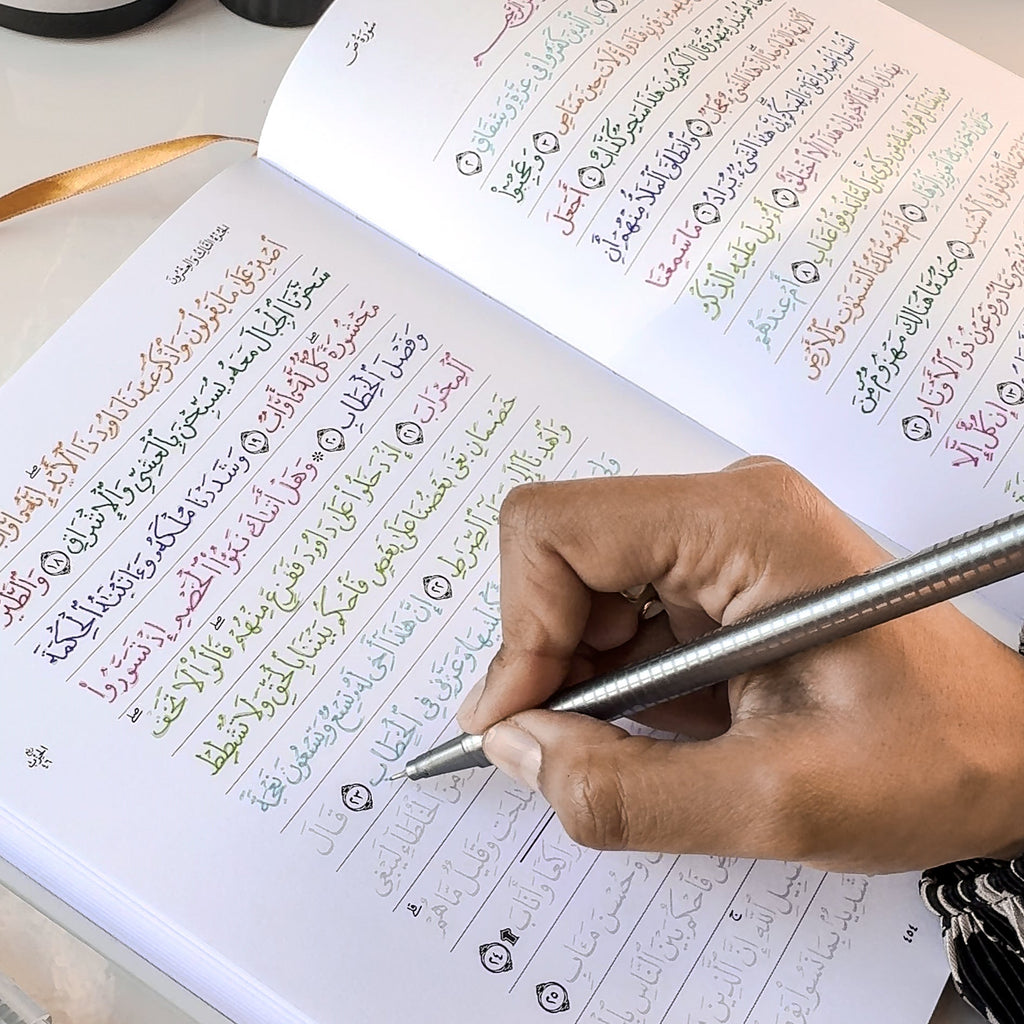 سُورَةُ صٓ
بَلِ ٱلَّذِينَ كَفَرُوا۟ فِى عِزَّةٍ وَشِقَاقٍ ٢
فَنَادَوا۟ وَّلَاتَ حِينَ مَنَاصٍ ٣ وَعَجِبُوٓا۟
مُّنذِرٌ مِّنْهُمْ وَقَالَ ٱلْكَٰفِرُونَ هَٰذَا سَٰحِرٌ كَذَّابٌ ٤ أَجَعَلَ
ٱلْءَالِهَةَ إِلَٰهًا وَٰحِدًا إِنَّ هَٰذَا لَشَىْءٌ عُجَابٌ ٥ وَٱنطَلَقَ ٱلْمَلَأُ مِنْهُمْ أَنِ
ٱمْشُوا۟ وَٱصْبِرُوا۟ عَلَىٰٓ ءَالِهَتِكُمْ إِنَّ هَٰذَا لَشَىْءٌ يُرَادُ ٦ مَا سَمِعْنَا
بِهَٰذَا فِى ٱلْمِلَّةِ ٱلْءَاخِرَةِ إِنْ هَٰذَآ إِلَّا ٱخْتِلَٰقٌ ٧ أَءُنزِلَ عَلَيْهِ ٱلذِّكْرُ
مِنۢ بَيْنِنَا بَلْ هُمْ فِى شَكٍّ مِّن ذِكْرِى بَل لَّمَّا يَذُوقُوا۟ عَذَابِ ٨ أَمْ عِندَهُمْ
خَزَآئِنُ رَحْمَةِ رَبِّكَ ٱلْعَزِيزِ ٱلْوَهَّابِ ٩ أَمْ لَهُم مُّلْكُ ٱلسَّمَٰوَٰتِ وَٱلْأَرْضِ
فِى ٱلْأَسْبَٰبِ ١٠ جُندٌ مَّا هُنَالِكَ مَهْزُومٌ مِّنَ
وَعَادٌ وَفِرْعَوْنُ ذُو ٱلْأَوْتَادِ ١٢
١٣ إِن كُلٌّ إِلَّا
الجُزْءُ الثَّالِثُ وَالعِشْرُونَ
ٱصْبِرْ عَلَىٰ مَا يَقُولُونَ وَٱذْكُرْ عَبْدَنَا دَاوُۥدَ ذَا ٱلْأَيْدِ إِنَّهُۥٓ أَوَّابٌ
سَخَّرْنَا ٱلْجِبَالَ مَعَهُۥ يُسَبِّحْنَ بِٱلْعَشِىِّ وَٱلْإِشْرَاقِ ١٨ وَٱلطَّيْرَ
مَحْشُورَةً كُلٌّ لَّهُۥٓ أَوَّابٌ ١٩ وَشَدَدْنَا مُلْكَهُۥ وَءَاتَيْنَٰهُ ٱلْحِكْمَةَ
وَفَصْلَ ٱلْخِطَابِ ٢٠ ۞ وَهَلْ أَتَىٰكَ نَبَؤُا۟ ٱلْخَصْمِ إِذْ تَسَوَّرُوا۟
ٱلْمِحْرَابَ ٢١ إِذْ دَخَلُوا۟ عَلَىٰ دَاوُۥدَ فَفَزِعَ مِنْهُمْ قَالُوا۟ لَا تَخَفْ
خَصْمَانِ بَغَىٰ بَعْضُنَا عَلَىٰ بَعْضٍ فَٱحْكُم بَيْنَنَا بِٱلْحَقِّ وَلَا تُشْطِطْ
وَٱهْدِنَآ إِلَىٰ ٱلصِّرَٰطِ ٢٢ إِنَّ هَٰذَآ أَخِى لَهُۥ تِسْعٌ وَتِسْعُونَ نَعْجَةً
وَعَزَّنِى فِى ٱلْخِطَابِ ٢٣ قَالَ
ٱلْخُلَطَآءِ لَيَبْغِى
وَقَلِيلٌ مَّا هُمْ
رَاكِعًا وَأَنَابَ ٢٤
وَحُسْنَ مَـَٔابٍ ٢٥
فَٱحْكُم بَيْنَ ٱلنَّاسِ
سَبِيلِ ٱللَّهِ إِنَّ ٱلَّذِينَ
شَدِيدٌۢ بِمَا نَسُوا۟
٤٥٤